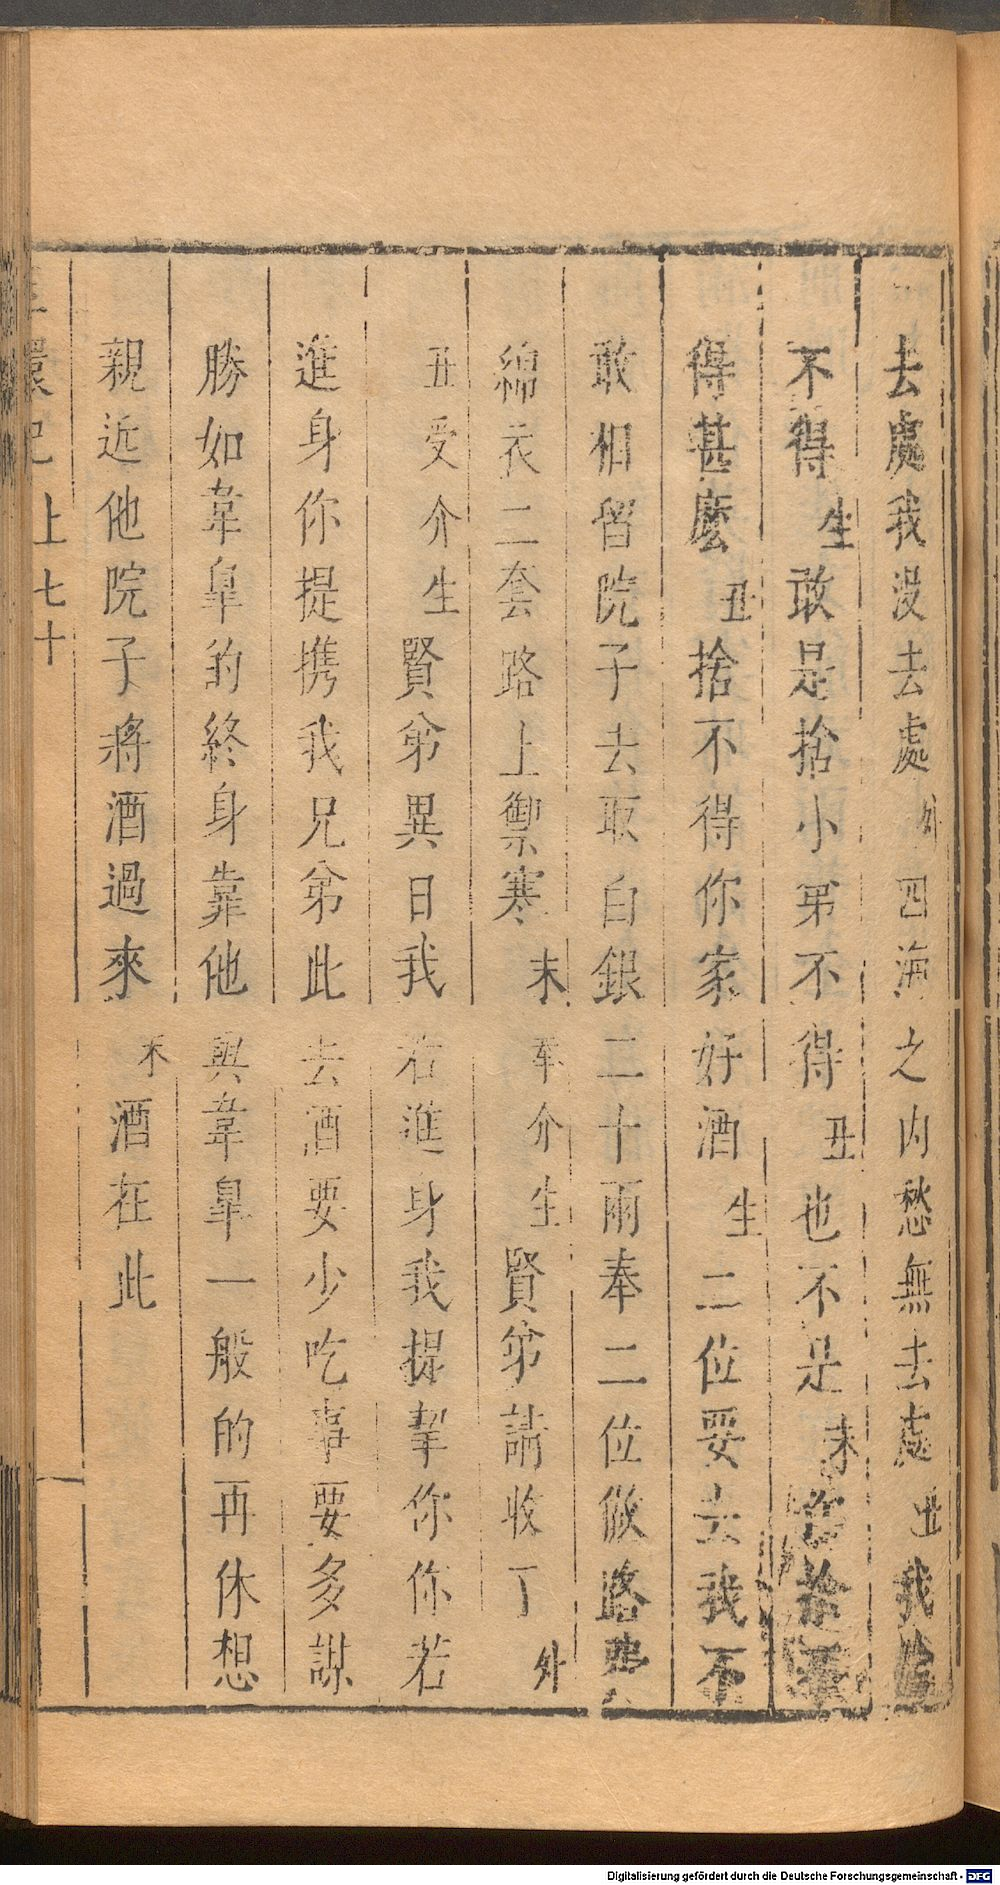 去處我没去處外四海之内愁無去處丑我捨
不得生敢是捨小弟不得丑也不是末你捨不
得甚麽丑捨不得你家好酒生二位要去我不
敢相留院子去取白銀二十兩奉二位做路費
綿衣二套路上禦寒末奉介生賢弟請收了外
丑受介生賢弟異日我若進身我提挈你你若
進身你提携我兄弟此去酒要少吃事要多謀
勝如韋皐的終身靠他與韋皐一般的再休想
親近他院子將酒過來末酒在此
環記 上 七十
Digitalisierung gefördert durch die Deutsche Forschungsgemeinschaft - DFG